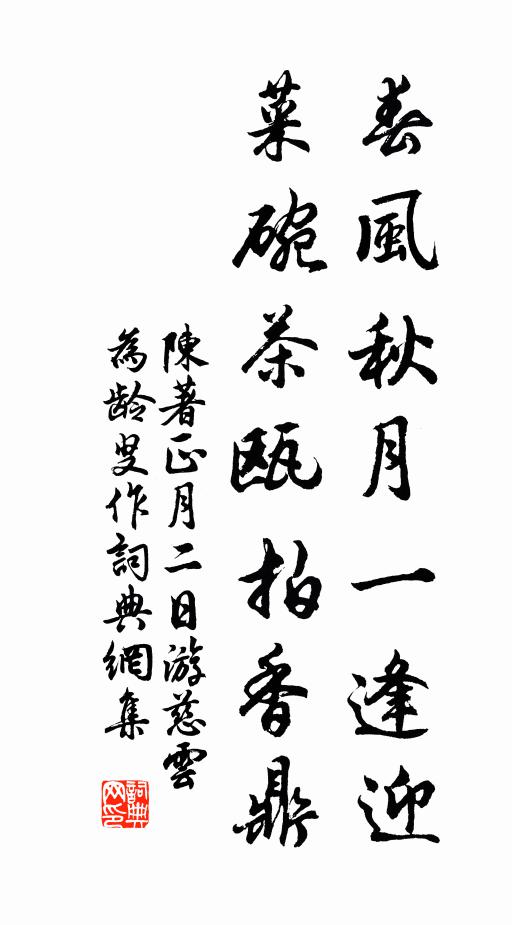 春風秋月一逢迎
菜碗茶甌拍香鼎
陳著正月二日游慈雲
為龄叟作詞典網集
詞典网印